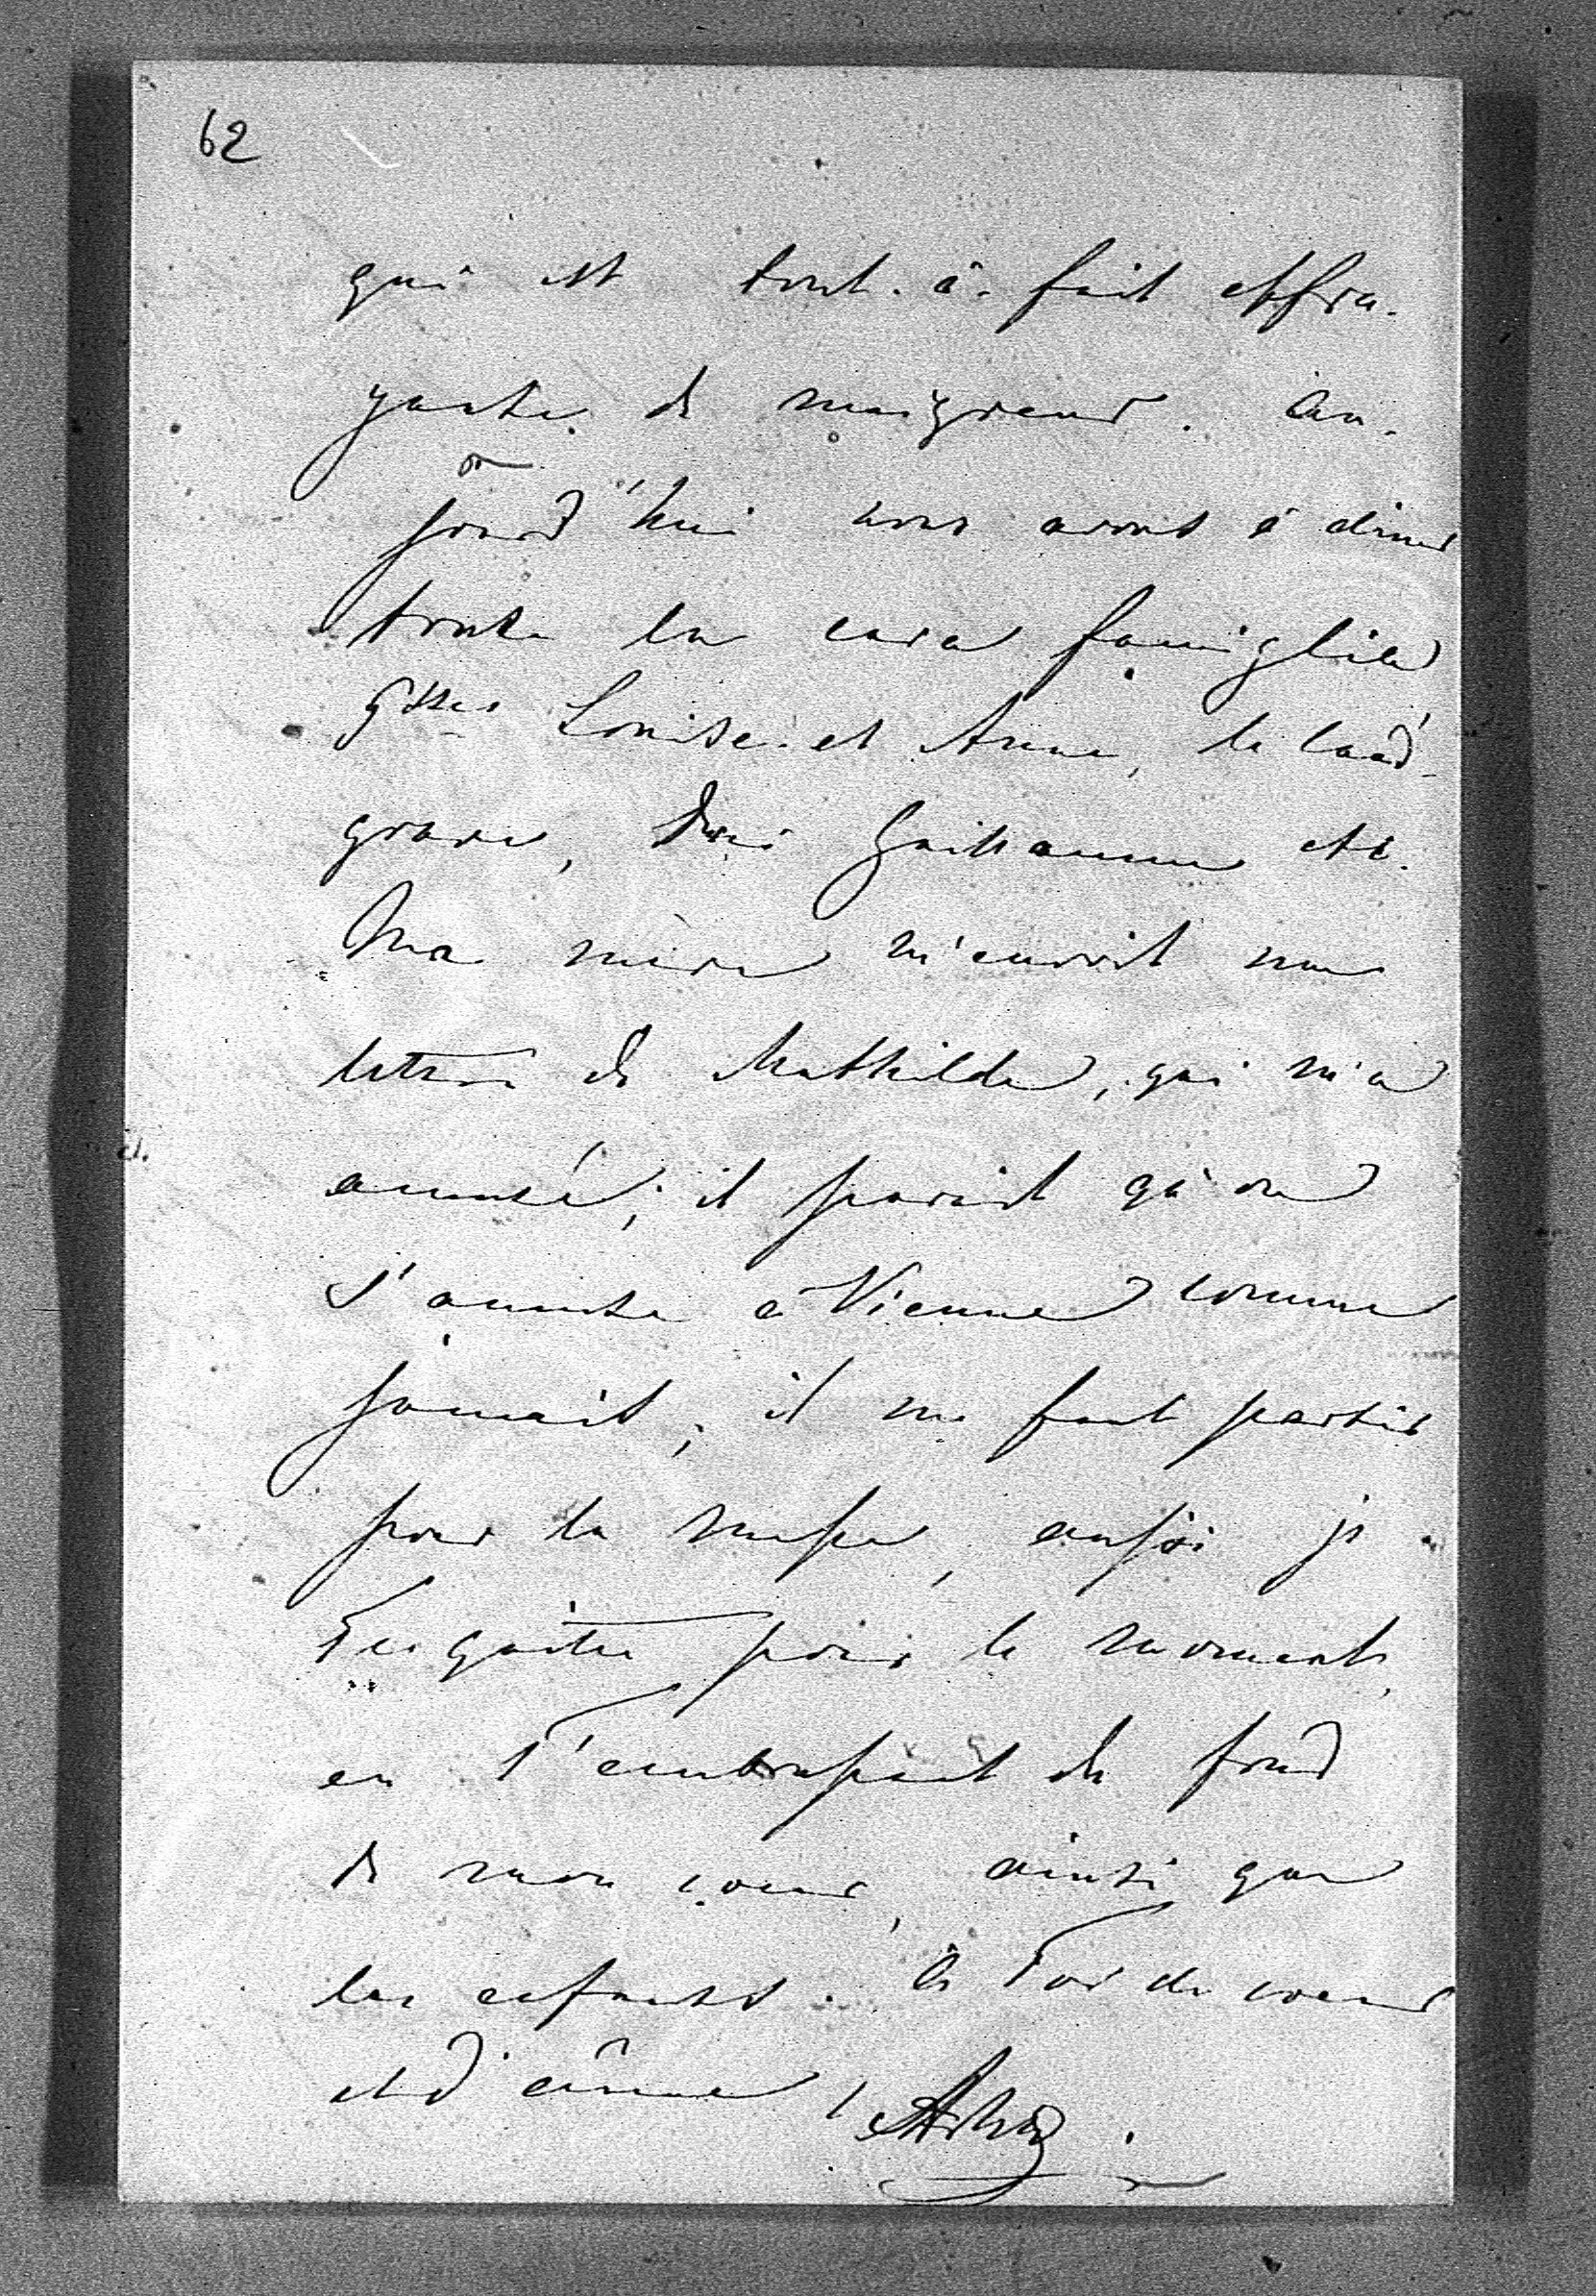 62
qui est tout-à-fait effra-
yante de maigreur. Au-
jourd'hui nous avons à dîner
toute la cara famiglia
Gdes Louise et Anne, le land-
grave, Guillaume etc.
Ma mère m'envoit une
lettre de Mathilde, qui m'a
amusé; il parait qu'on
s'amuse à Vienne comme
jamais; il me faut partir
pour la messe, aussi je
Te quitte pour le moment,
en T'embrassant du fond
de mon coeur, ainsi que
les enfants. à Toi de coeur
et d'âme,